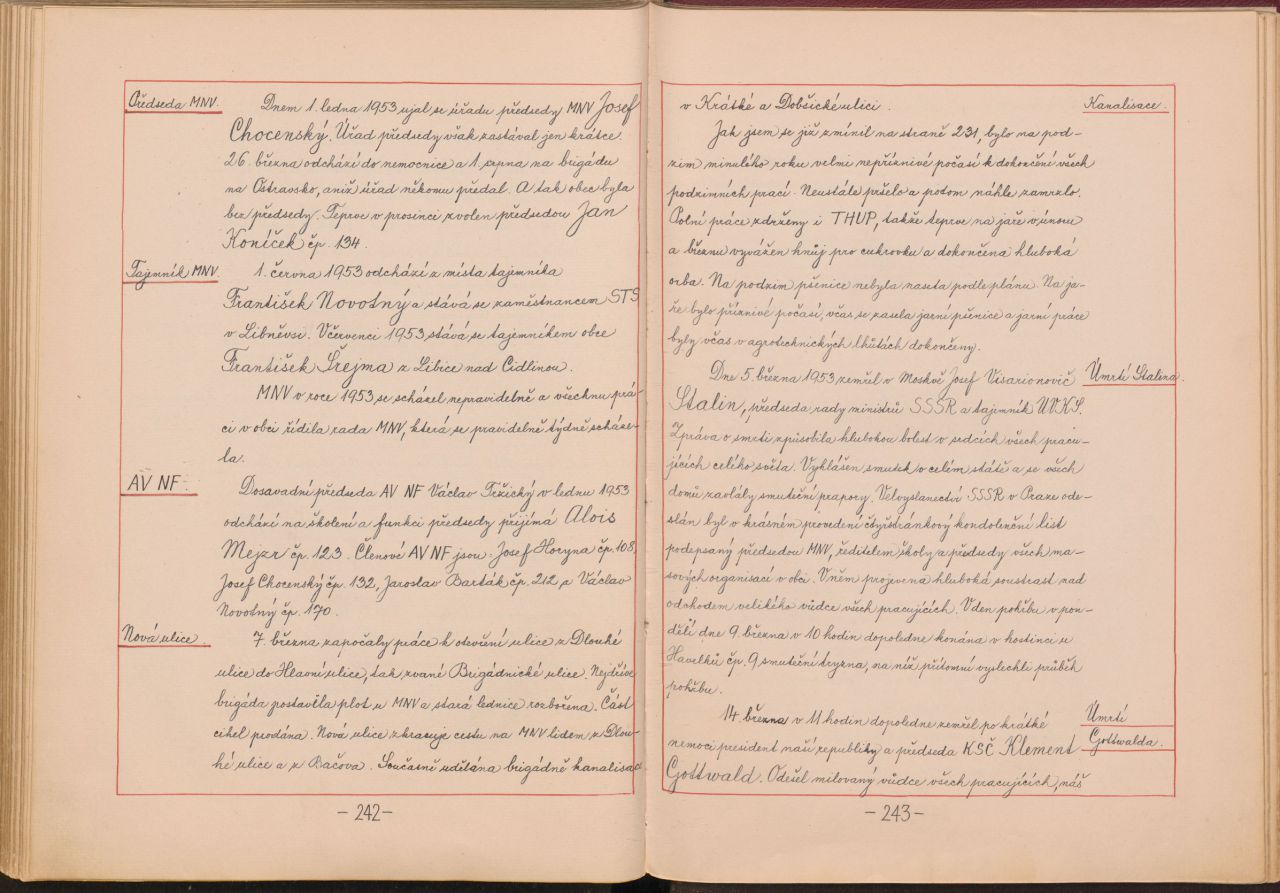 Předseda MNV.
Dnem 1. ledna 1953 ujal se úřadu předsedy MNV Josef
Chocenský. Úřad předsedy však zastával jen krátce.
26. března odchází do nemocnice a 1. srpna na brigádu
na Ostravsko, aniž úřad někomu předal. A tak obec byla
bez předsedy. Teprve v prosinci zvolen předsedou Jan
Koníček čp. 134.
Tajemník MNV.
1. června 1953 odchází z místa tajemníka
František Novotný a stává se zaměstnancem STS
v Libněvsi. V červenci 1953 stává se tajemníkem obce
František Šrejma z Libice nad Cidlinou.
MNV v roce 1953 se scházel nepravidelně a všechnu prá-
ci v obci řídila rada MNV, která se pravidelně týdně scháze-
la.
AV NF.
Dosavadní předseda AV NF Václav Tržický v lednu 1953
odchází na školení a funkci předsedy přijímá Alois
Mejzr čp. 123. Členové AV NF jsou: Josef Horyna čp. 108,
Josef Chocenský čp. 132, Jaroslav Barták čp. 212, a Václav
Novotný čp. 170.
Nová ulice
7. března započaly práce k otevření ulice z Dlouhé
ulice do Hlavní ulice, tak zvané Brigádnické ulice. Nejdříve
brigáda postavěla plot u MNV a stará lednice rozbořena. Část
cihel prodána. Nová ulice zkracuje cestu na MNV lidem z Dlou-
hé ulice a z Bačova. Současně udělána brigádně kanalisac
- 242 -
v Krátké a Dobšické ulici.
Kanalisace.
Jak jsem se již zmínil na straně 231, bylo na pod-
zim minulého roku velmi nepříznivé počasí k dokončení všech
podzimních prací. Neustále pršelo a potom náhle zamrzlo.
Polní práce zdrženy i THUP, takže teprve na jaře v únoru
a březnu vyvážen hnůj pro cukrovku a dokončena hluboká
orba. Na podzim pšenice nebyla naseta podle plánu. Na ja-
ře bylo příznivé počasí, včas se zasela jarní pšenice a jarní práce
byly včas v agrotechnických lhůtách dokončeny.
Dne 5. března 1953 zemřel v Moskvě Josef Visarionovič
Úmrtí Stalina.
Stalin, předseda rady ministrů SSSR a tajemník ÚVKS.
Zpráva o smrti způsobila hlubokou bolest v srdcích všech pracu-
jících celého světa. Vyhlášen smutek v celém státě a se všech
domů zavlály smuteční prapory. Velvyslanectví SSSR v Praze ode-
slán byl v krásném provedení čtyřstránkový kondolenční list
podepsaný předsedou MNV, ředitelem školy a předsedy všech ma-
sových organisací v obci. V něm projevena hluboká soustrast nad
odchodem velikého vůdce všech pracujících. V den pohřbu v pon-
dělí dne 9. března v 10 hodin dopoledne konána v hostinci u
Havelků čp. 9 smuteční tryzna, na níž přítomní vyslechli průběh
pohřbu.
14. března v 11 hodin dopoledne zemřel po krátké
Úmrtí
Gottwalda.
nemoci president naší republiky a předseda KSČ Klement
Gottwald. Odešel milovaný vůdce všech pracujících, náš
- 243 -